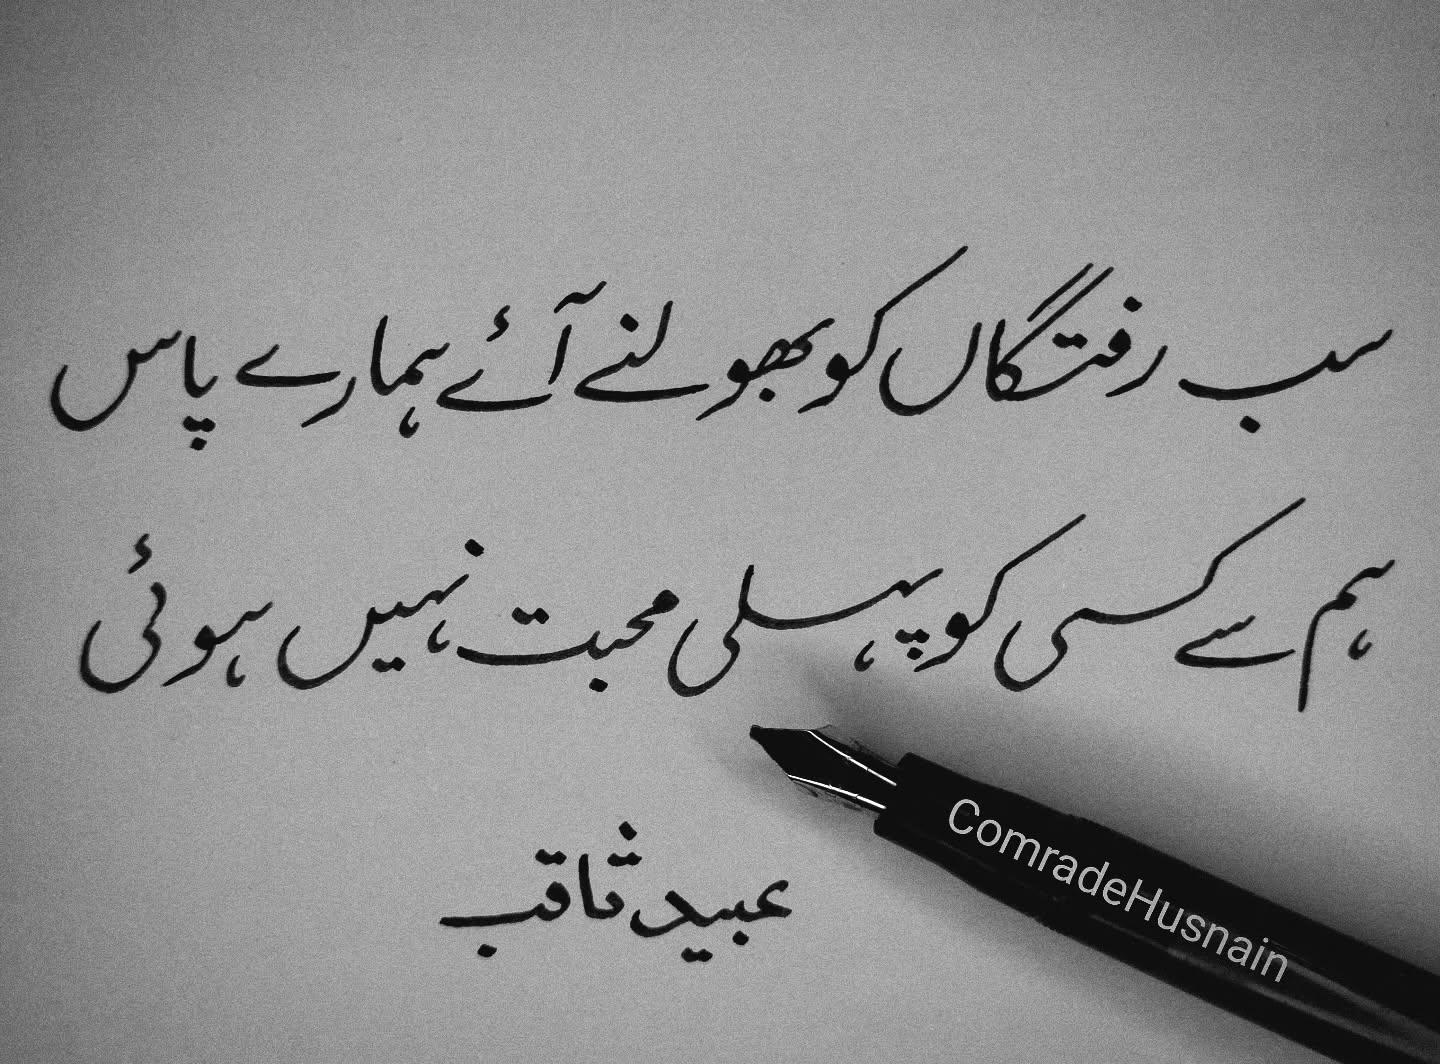 سب رفتگاں کو بھولنے آئے ہمارے پاس
ہم سے کسی کو پہلی محبت نہیں ہوئی
عبید ثاقب
ComradeHusnain